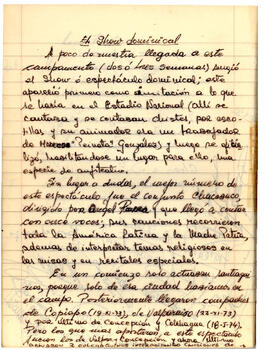 El Show dominical
A poco de nuestra llegada a este
campamento (dos ó tres semanas) surgió
el Show ó espectáculo dominical; este
apareció primero como imitación a lo que
se hacía en el Estadio Nacional (allí se
cantaba y se contaban chistes, por esco-
tillas y su animador era un
Gonzalez) y luego se
lizó, habilitándose un lugar para ello, una
especie de anfiteatro.
Sin lugar a dudas, el mejor número de
este espectáculo fue el conjunto Chacabuco
dirigido por Angel Parra y que llegó a contar
con once voces, sus canciones recorrieron
toda la América Latina y la Madre Patria,
además de interpretar temas religiosos en
las misas y en recitales especiales.
En un comienzo solo actuaban santiagui-
nos, porque solo de esa ciudad habíamos en
el campo. Posteriormente llegaron compañeros
de Copiapó (19-12-73), de Valparaíso (22-11-73)
y por último de Concepción y Colchagua (18-1-74).
Pero los que más aportaron a este espectáculo
fueron los de Valpo y Concepción y ahora último